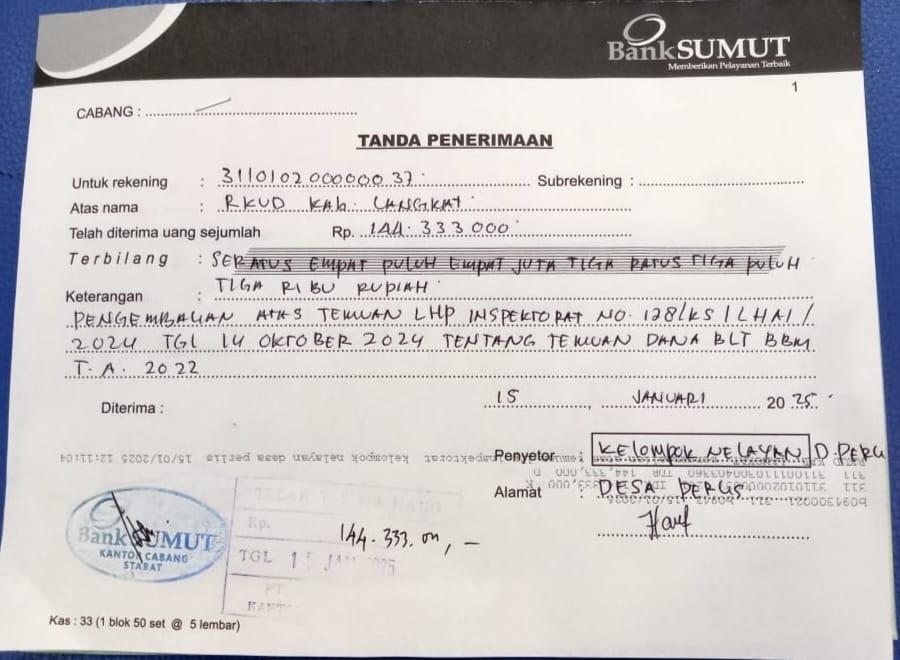 BankSUMUT
Memberikan Pelayanan Terbaik
1
CABANG :
TANDA PENERIMAAN
Untuk rekening : 31101020000037 Subrekening :
Atas nama : RKUD KAB. LANGKAT
Telah diterima uang sejumlah Rp. 144.333.000
Terbilang : SERATUS EMPAT PULUH EMPAT JUTA TIGA RATUS TIGA PULUH
TIGA RIBU RUPIAH
Keterangan :
PENGEMBALIAN ATAS TEMUAN LHP INSPEKTORAT NO. 128/KS/LHAI/
2024 TGL 14 OKTOBER 2024 TENTANG TEMUAN DANA BLT BBM
T.A. 2022
Diterima : 15, JANUARI 2025
Penyetor : KELOMPOK NELAYAN D. PERG
kelompok nelayan desa perlis 15/01/2025 12:11:04
Alamat : DESA PERLIS
BankSUMUT
KANTOR CABANG
STABAT
Rp. 144.333.000,-
TGL 15 JAN 2025
Kas : 33 (1 blok 50 set @ 5 lembar)